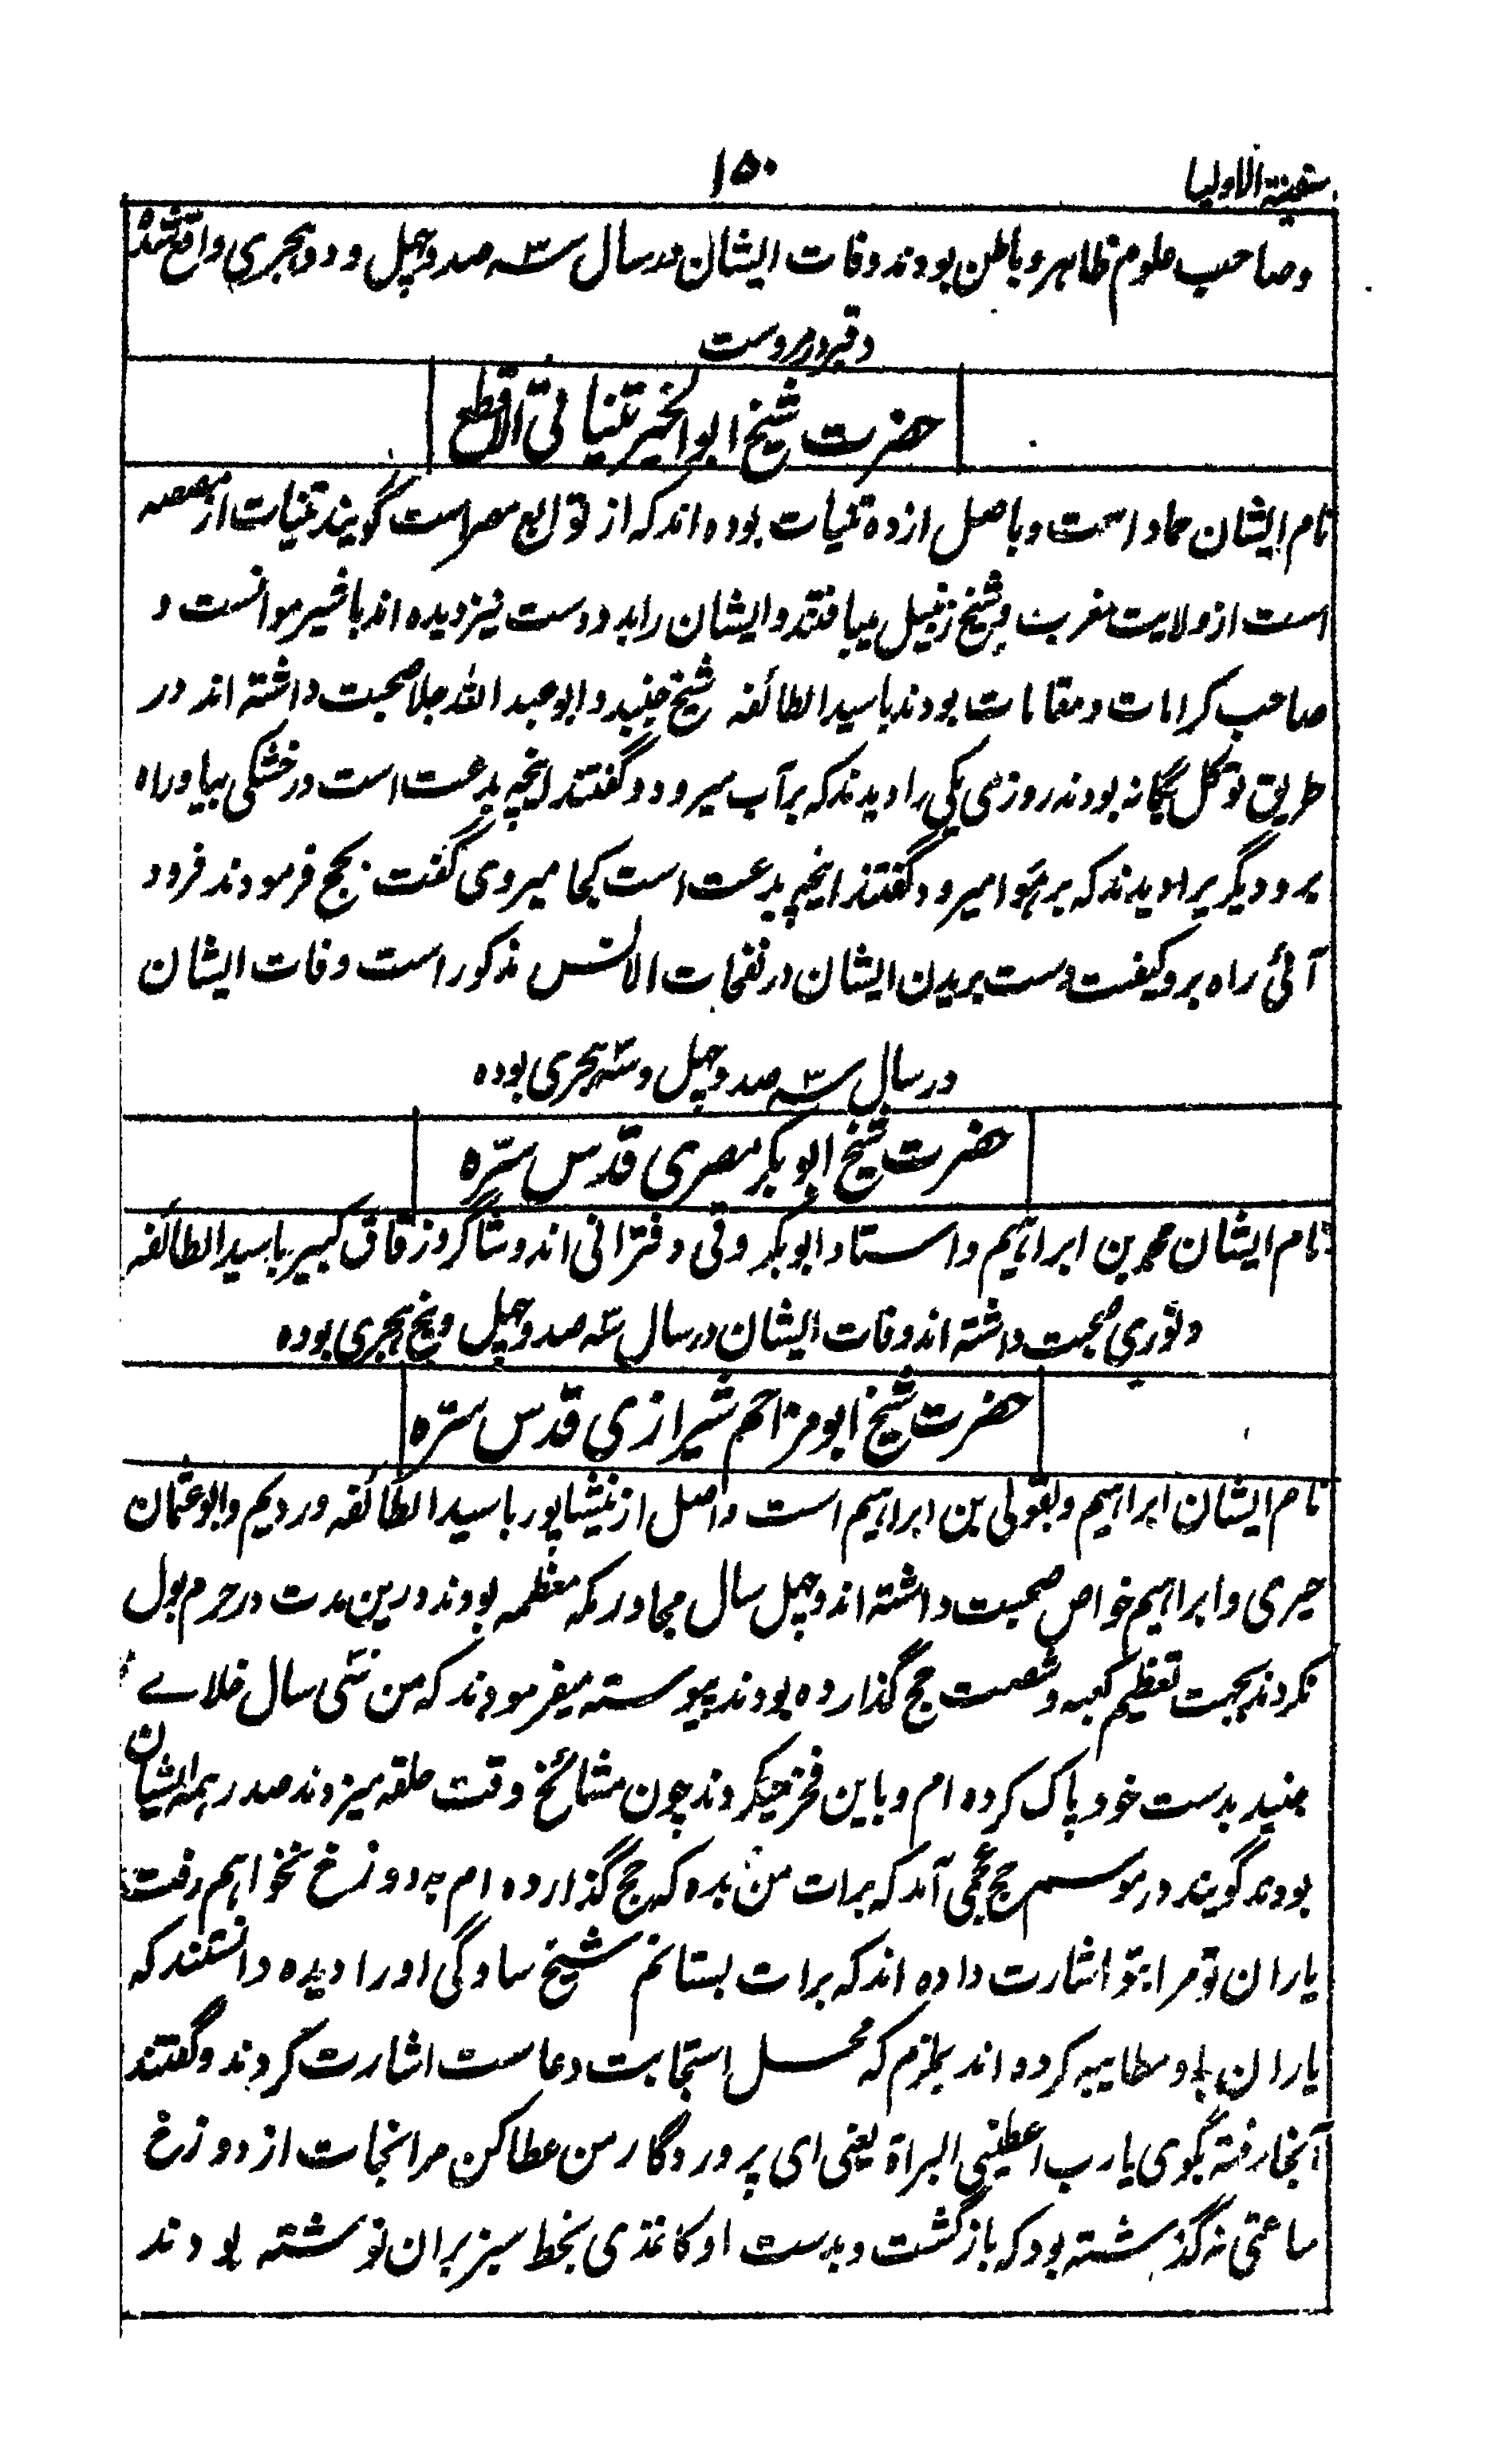 سفینة الاولیا
۱۵۰
وصاحب علوم ظاہر و باطن بودند وفات ایشان در سال سہ صد و چہل و دو ہجری واقع شد
و قبر در مروست
حضرت شیخ ابو الخیر تیناتی الاقطع
نام ایشان حماد است و باصل از ده تینات بوده اند کہ از توابع مصر است گویند تینات از مصیصہ
است از ولایت مغرب و شیخ زنبیل میبافتند و ایشان را بدو دست نیز دیده اند با شیر موانست و
صاحب کرامات و مقامات بودند با سید الطائفہ شیخ جنید و ابو عبد اللہ جلا صحبت داشتہ اند در
طریق توکل یگانہ بودند روزی یکی را دیدند کہ بر آب میرود گفتند اینچہ بدعت است در خشکی بیا و راه
برو دیگریرا دیدند کہ بر ہوا میرود گفتند اینچہ بدعت است کجا میروی گفت بحج فرمودند فرود
آئی راه برو کیفیت دست بریدن ایشان در نفحات الانس مذکور است وفات ایشان
در سال سہ صد و چہل و سہ ہجری بوده
حضرت شیخ ابو بکر مصری قدس سرّه
نام ایشان محمد بن ابراہیم و استاد ابو بکر دقی اند و شاگرد زقاق کبیر با سید الطائفہ
و نوری صحبت داشتہ اند وفات ایشان در سال سہ صد و چہل و پنج ہجری بوده
حضرت شیخ ابو مزاحم شیرازی قدس سرّه
نام ایشان ابراہیم و بقولی بن ابراہیم است و اصل از نیشاپور با سید الطائفہ و رویم و ابو عثمان
حیری و ابراہیم خواص صحبت داشتہ اند و چہل سال مجاور مکہ معظمہ بودند درین مدت در حرم بول
نکردند بجہت تعظیم کعبہ و شصت حج گذارده بودند پیوستہ میفرمودند کہ من سی سال خلاے
جنید بدست خود پاک کرده ام و باین فخر میکردند چون مشائخ وقت حلقہ میزدند صدر ہمہ ایشان
بودند گویند در موسم حج عجمی آمد کہ برات من بده کہ حج گذارده ام بہ دوزخ نخواہم رفت
یاران تو مرا بتو اشارت داده اند کہ برات بستانم شیخ سادگی او را دیده دانستند کہ
یاران باو مطایبہ کرده اند بملزم کہ محل استجابت دعاست اشارت کردند و گفتند
آنجا رفتہ بگوی یا رب اعطینی البراة یعنی ای پروردگار من عطا کن مرا نجات از دوزخ
ساعتی نہ گذشتہ بود کہ بازگشت و بدست او کاغذی بخط سبز بران نوشتہ بودند